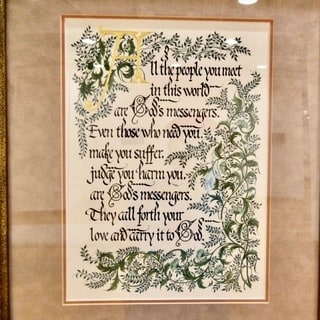 All the people you meet
in this world
are God's messengers.
Even those who need you,
make you suffer,
judge you, harm you,
are God's messengers.
They call forth your
love and carry it to God.